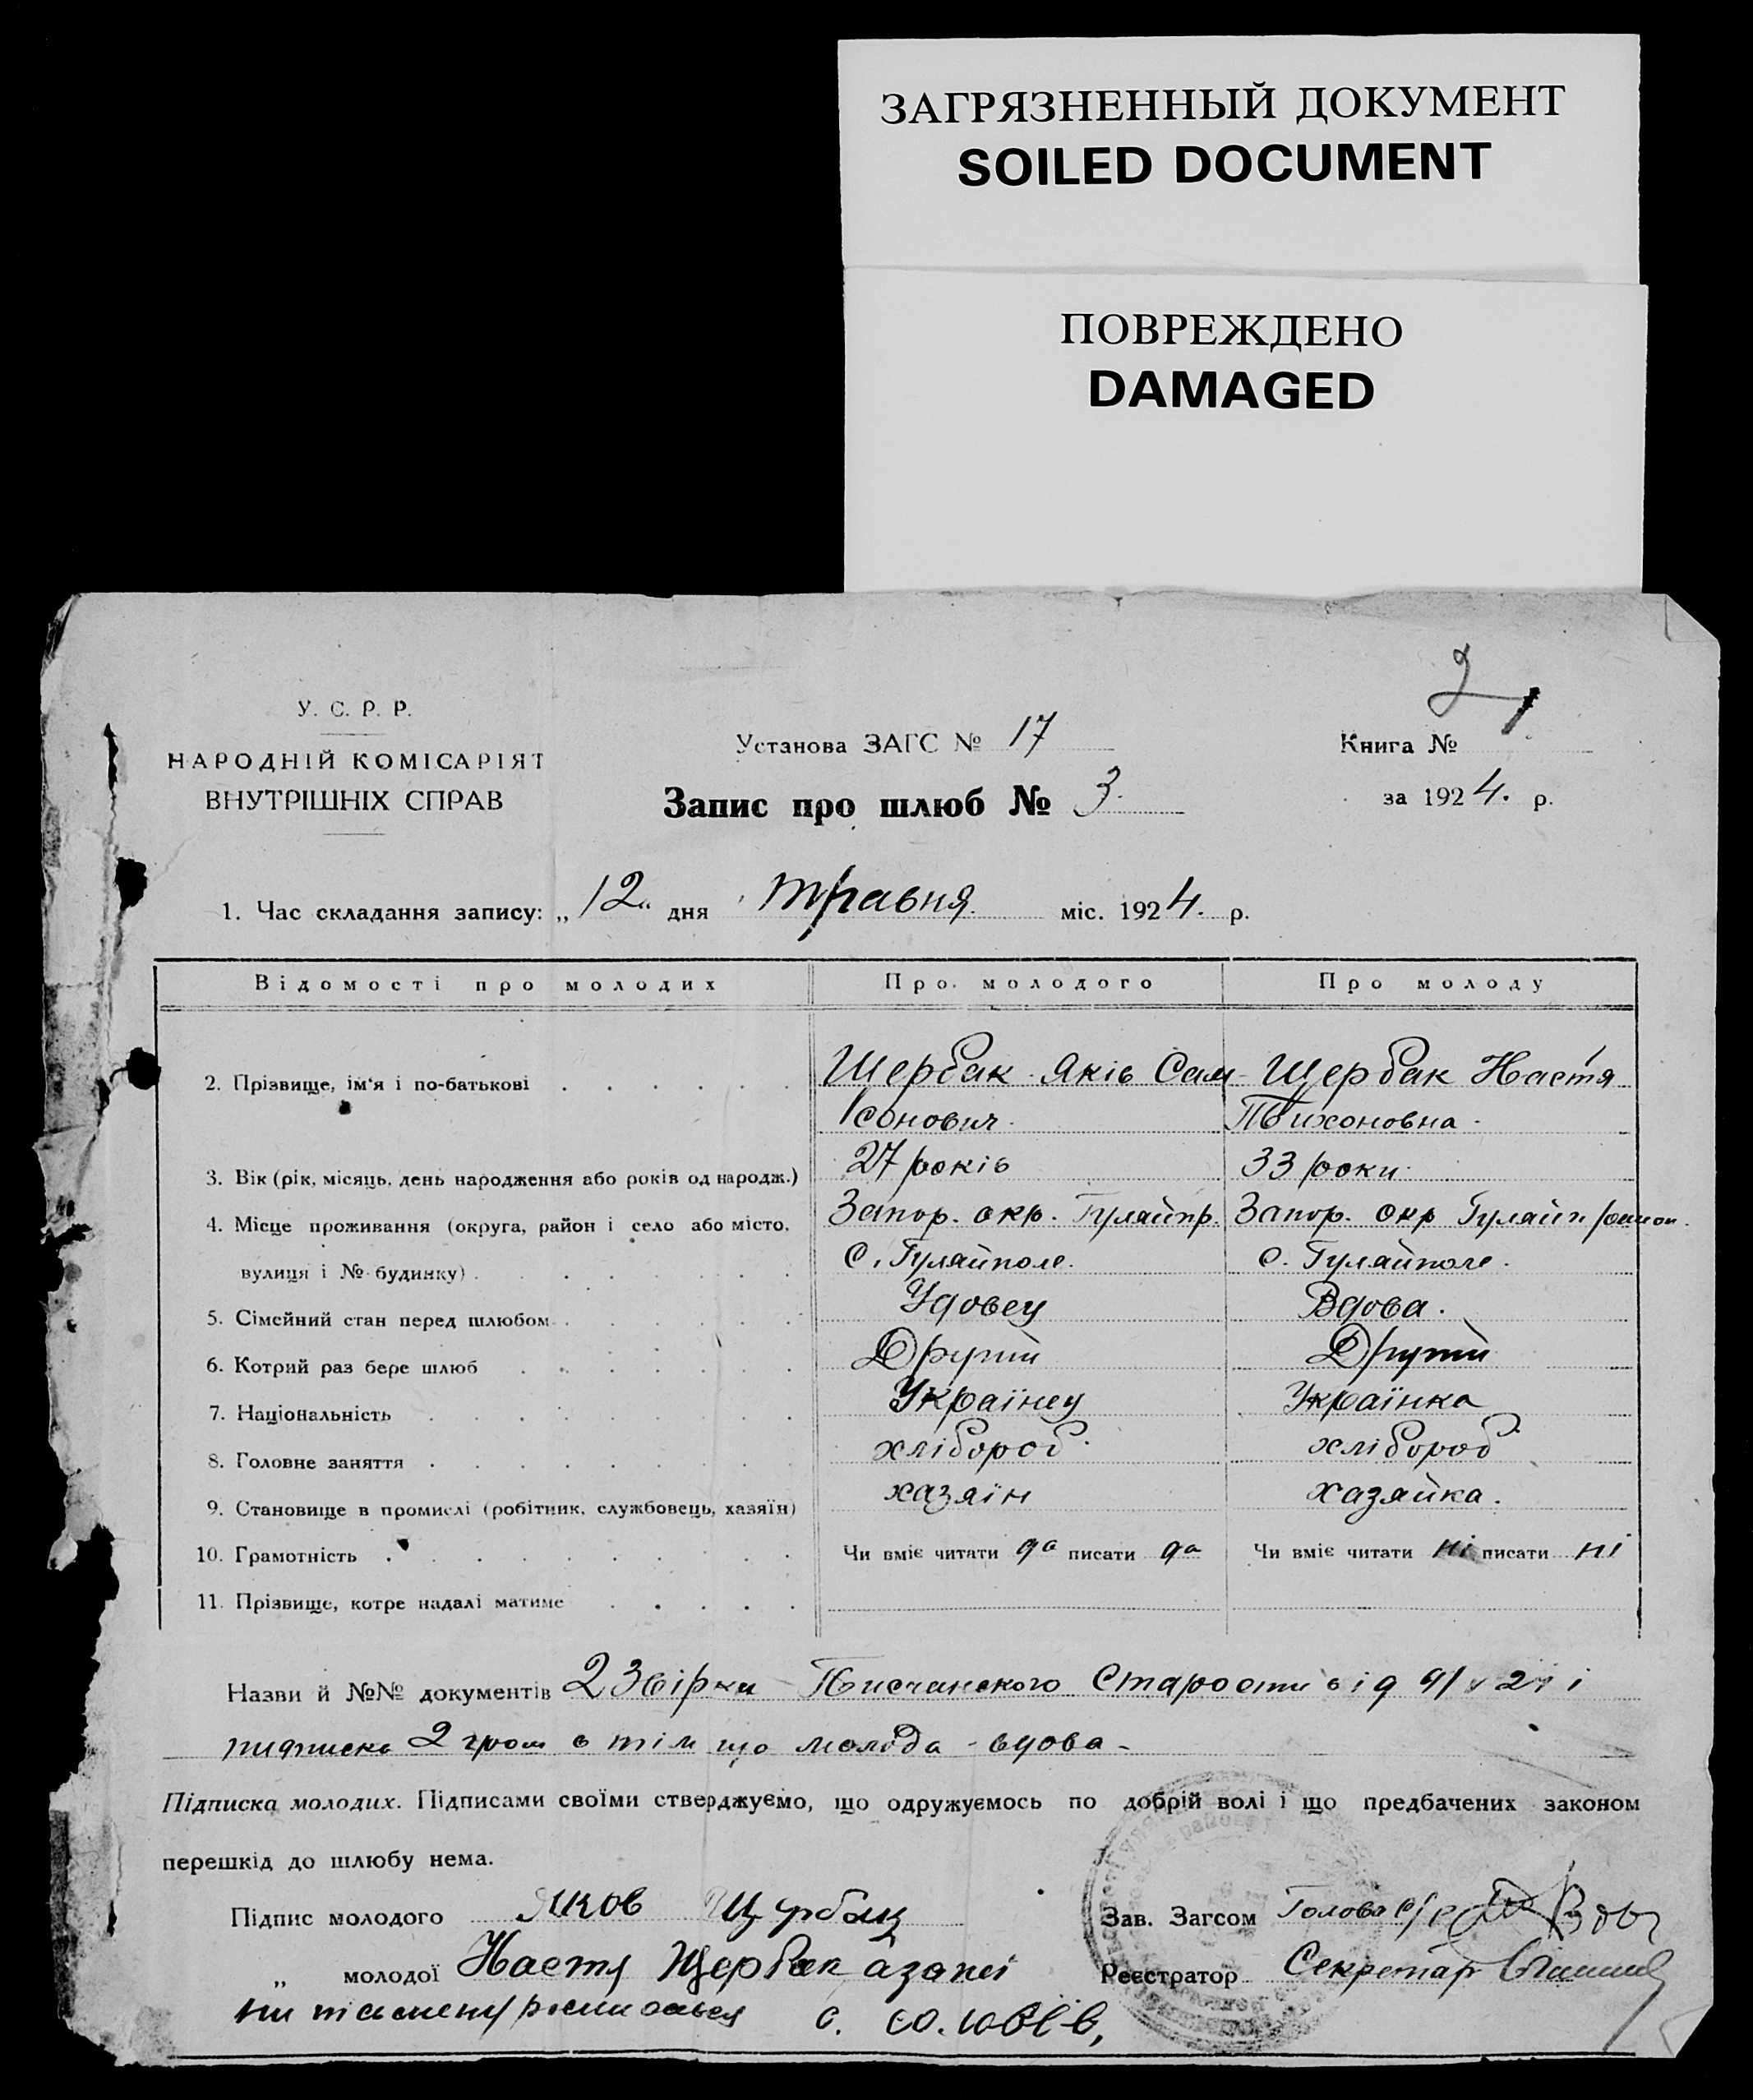 ЗАГРЯЗНЕННЫЙ ДОКУМЕНТ
SOILED DOCUMENT
ПОВРЕЖДЕНО
DAMAGED
2
У. С. Р. Р.
НАРОДНІЙ КОМІСАРІЯТ
ВНУТРІШНІХ СПРАВ
Установа ЗАГС № 17
Книга №
Запис про шлюб № 3.
за 1924. р.
1. Час складання запису: „12" дня травня міс. 1924. р.
Відомості про молодих Про молодого Про молоду
2. Прізвище, ім'я і по-батькові Щербак Яків Сам Щербак Настя
сонович. Тихоновна.
3. Вік (рік, місяць, день народження або років од народж.) 27 років 33 роки
4. Місце проживання (округа, район і село або місто, Запор. окр. Гуляйпр. Запор. окр Гуляйп район.
вулиця і № будинку) с. Гуляйполе. с. Гуляйполе.
5. Сімейний стан перед шлюбом Удовец Вдова.
6. Котрий раз бере шлюб Другий Другий
7. Національність Українец Українка
8. Головне заняття хлібороб. хлібороб
9. Становище в промислі (робітник, службовець, хазяїн) хазяїн хазяйка.
10. Грамотність Чи вміє читати да писати да Чи вміє читати ні писати ні
11. Прізвище, котре надалі матиме
Назви й №№ документів 2 Звірки Старости від і
підписка 2 гром в тім що молода - вдова -
Підписка молодих. Підписами своїми стверджуємо, що одружуємось по добрій волі і що предбачених законом
перешкід до шлюбу нема.
Підпис молодого Яков Щербак Зав. Загсом Голова с/р
„ молодої Настя Щербак Реєстратор Секретар
с.